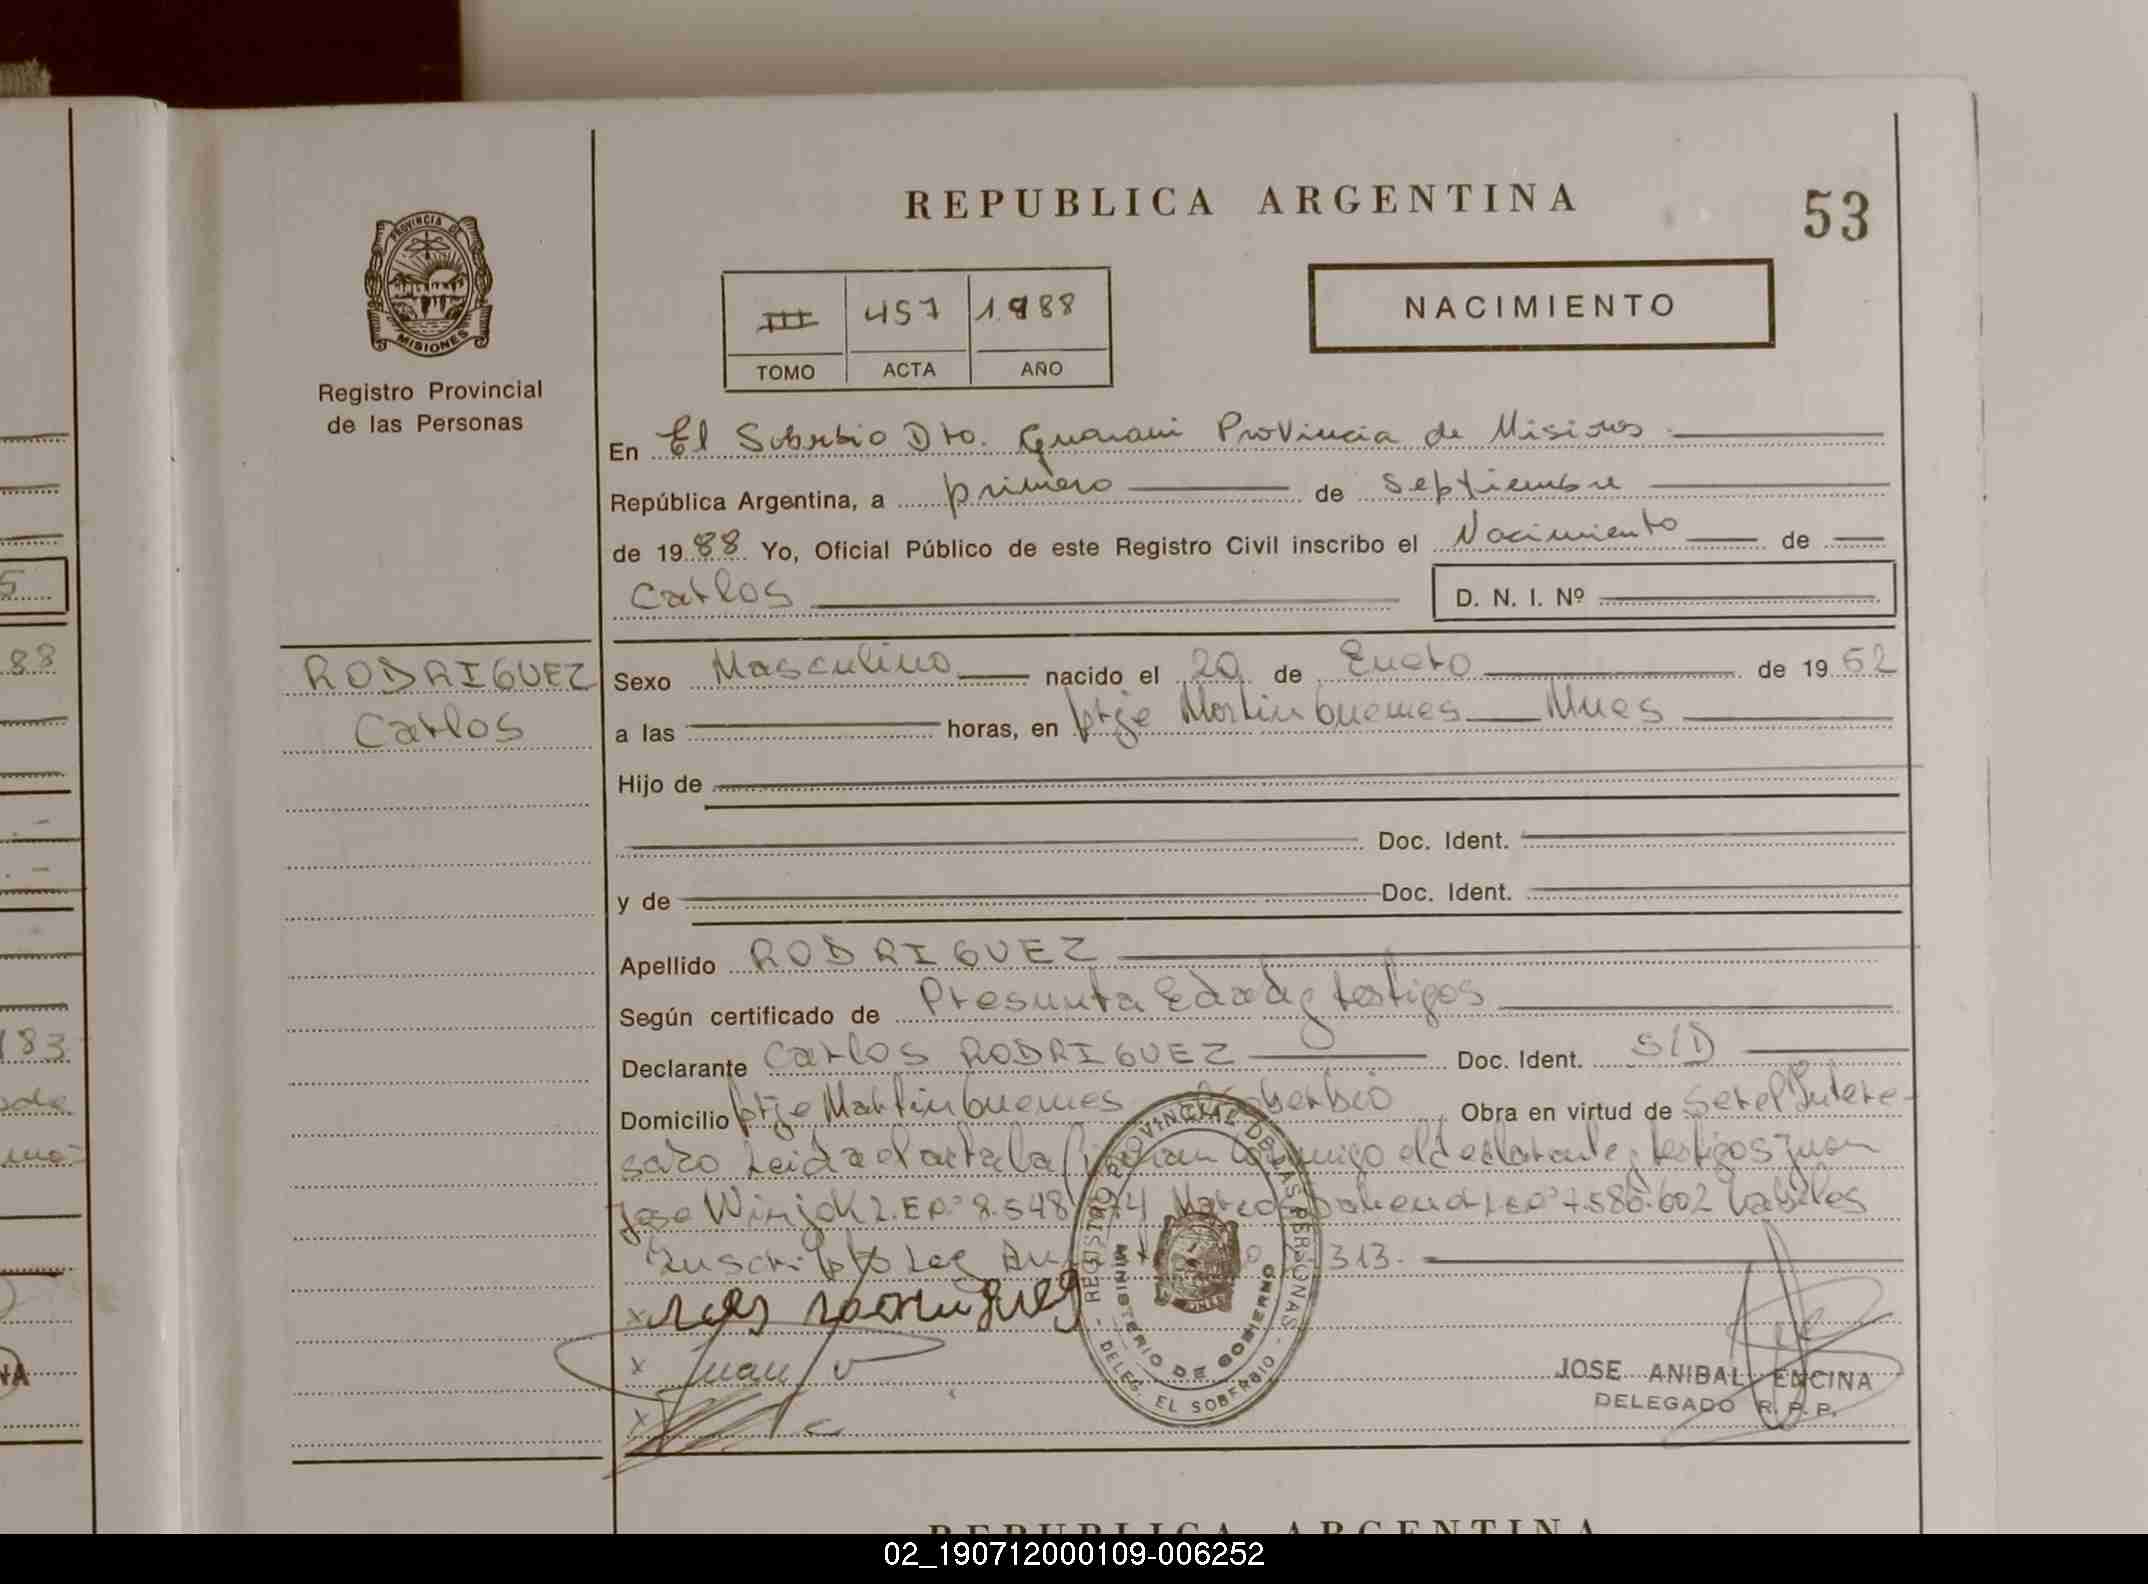 REPUBLICA ARGENTINA
53
PROVINCIA DE
MISIONES
Registro Provincial
de las Personas
III 457 1988
TOMO ACTA AÑO
NACIMIENTO
En El Soberbio Dto. Guarani Provincia de Misiones
República Argentina, a primero de septiembre
de 1988 Yo, Oficial Público de este Registro Civil inscribo el Nacimiento de
Carlos D. N. I. Nº
RODRIGUEZ
Carlos
Sexo Masculino nacido el 20 de Enero de 1952
a las horas, en ptje Martin Guemes Mnes
Hijo de
Doc. Ident.
y de Doc. Ident.
Apellido RODRIGUEZ
Según certificado de Presunta Edad y testigos
Declarante Carlos RODRIGUEZ Doc. Ident. S/D
Domicilio ptje Martin Guemes Soberbio Obra en virtud de Ser el Intere-
sado Leida el acta la conmigo el declarante y testigos Juan
Jose 8.548 7.586.602 habiles
Inscripto Ley 313.
Juan
REGISTRO PROVINCIAL DE LAS PERSONAS
MINISTERIO DE GOBIERNO
DELEG. EL SOBERBIO
JOSE ANIBAL ENCINA
DELEGADO R. P. P.
5
88
183
NA
REPUBLICA ARGENTINA
02_190712000109-006252